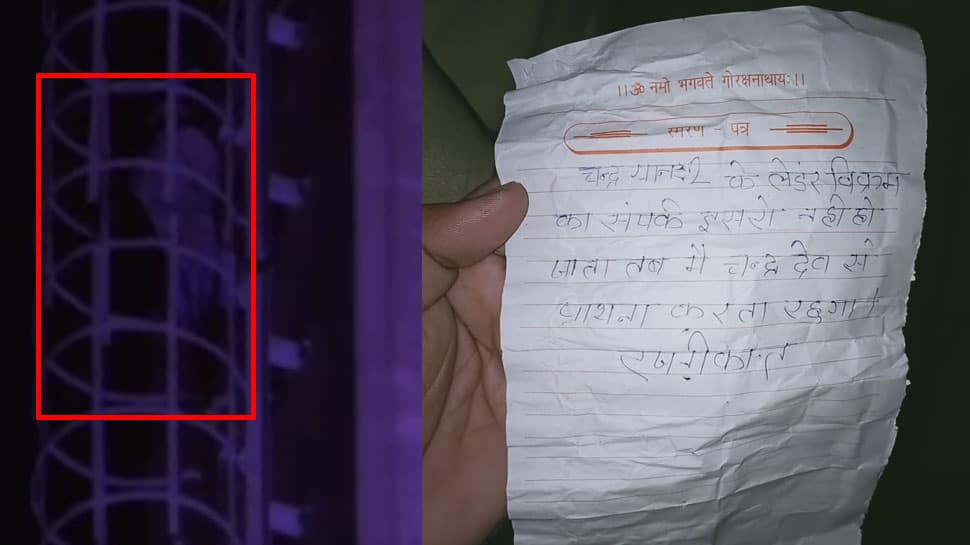 ।।ॐ नमो भगवते गोरक्षनाथायः।।
स्मरण - पत्र
चन्द्रयान२ के लेडंर विक्रम
का संपर्क इसरो नही हो
जाता तब मै चन्द्र देव से
प्राथना करता रहुगा।
रजनीकान्त